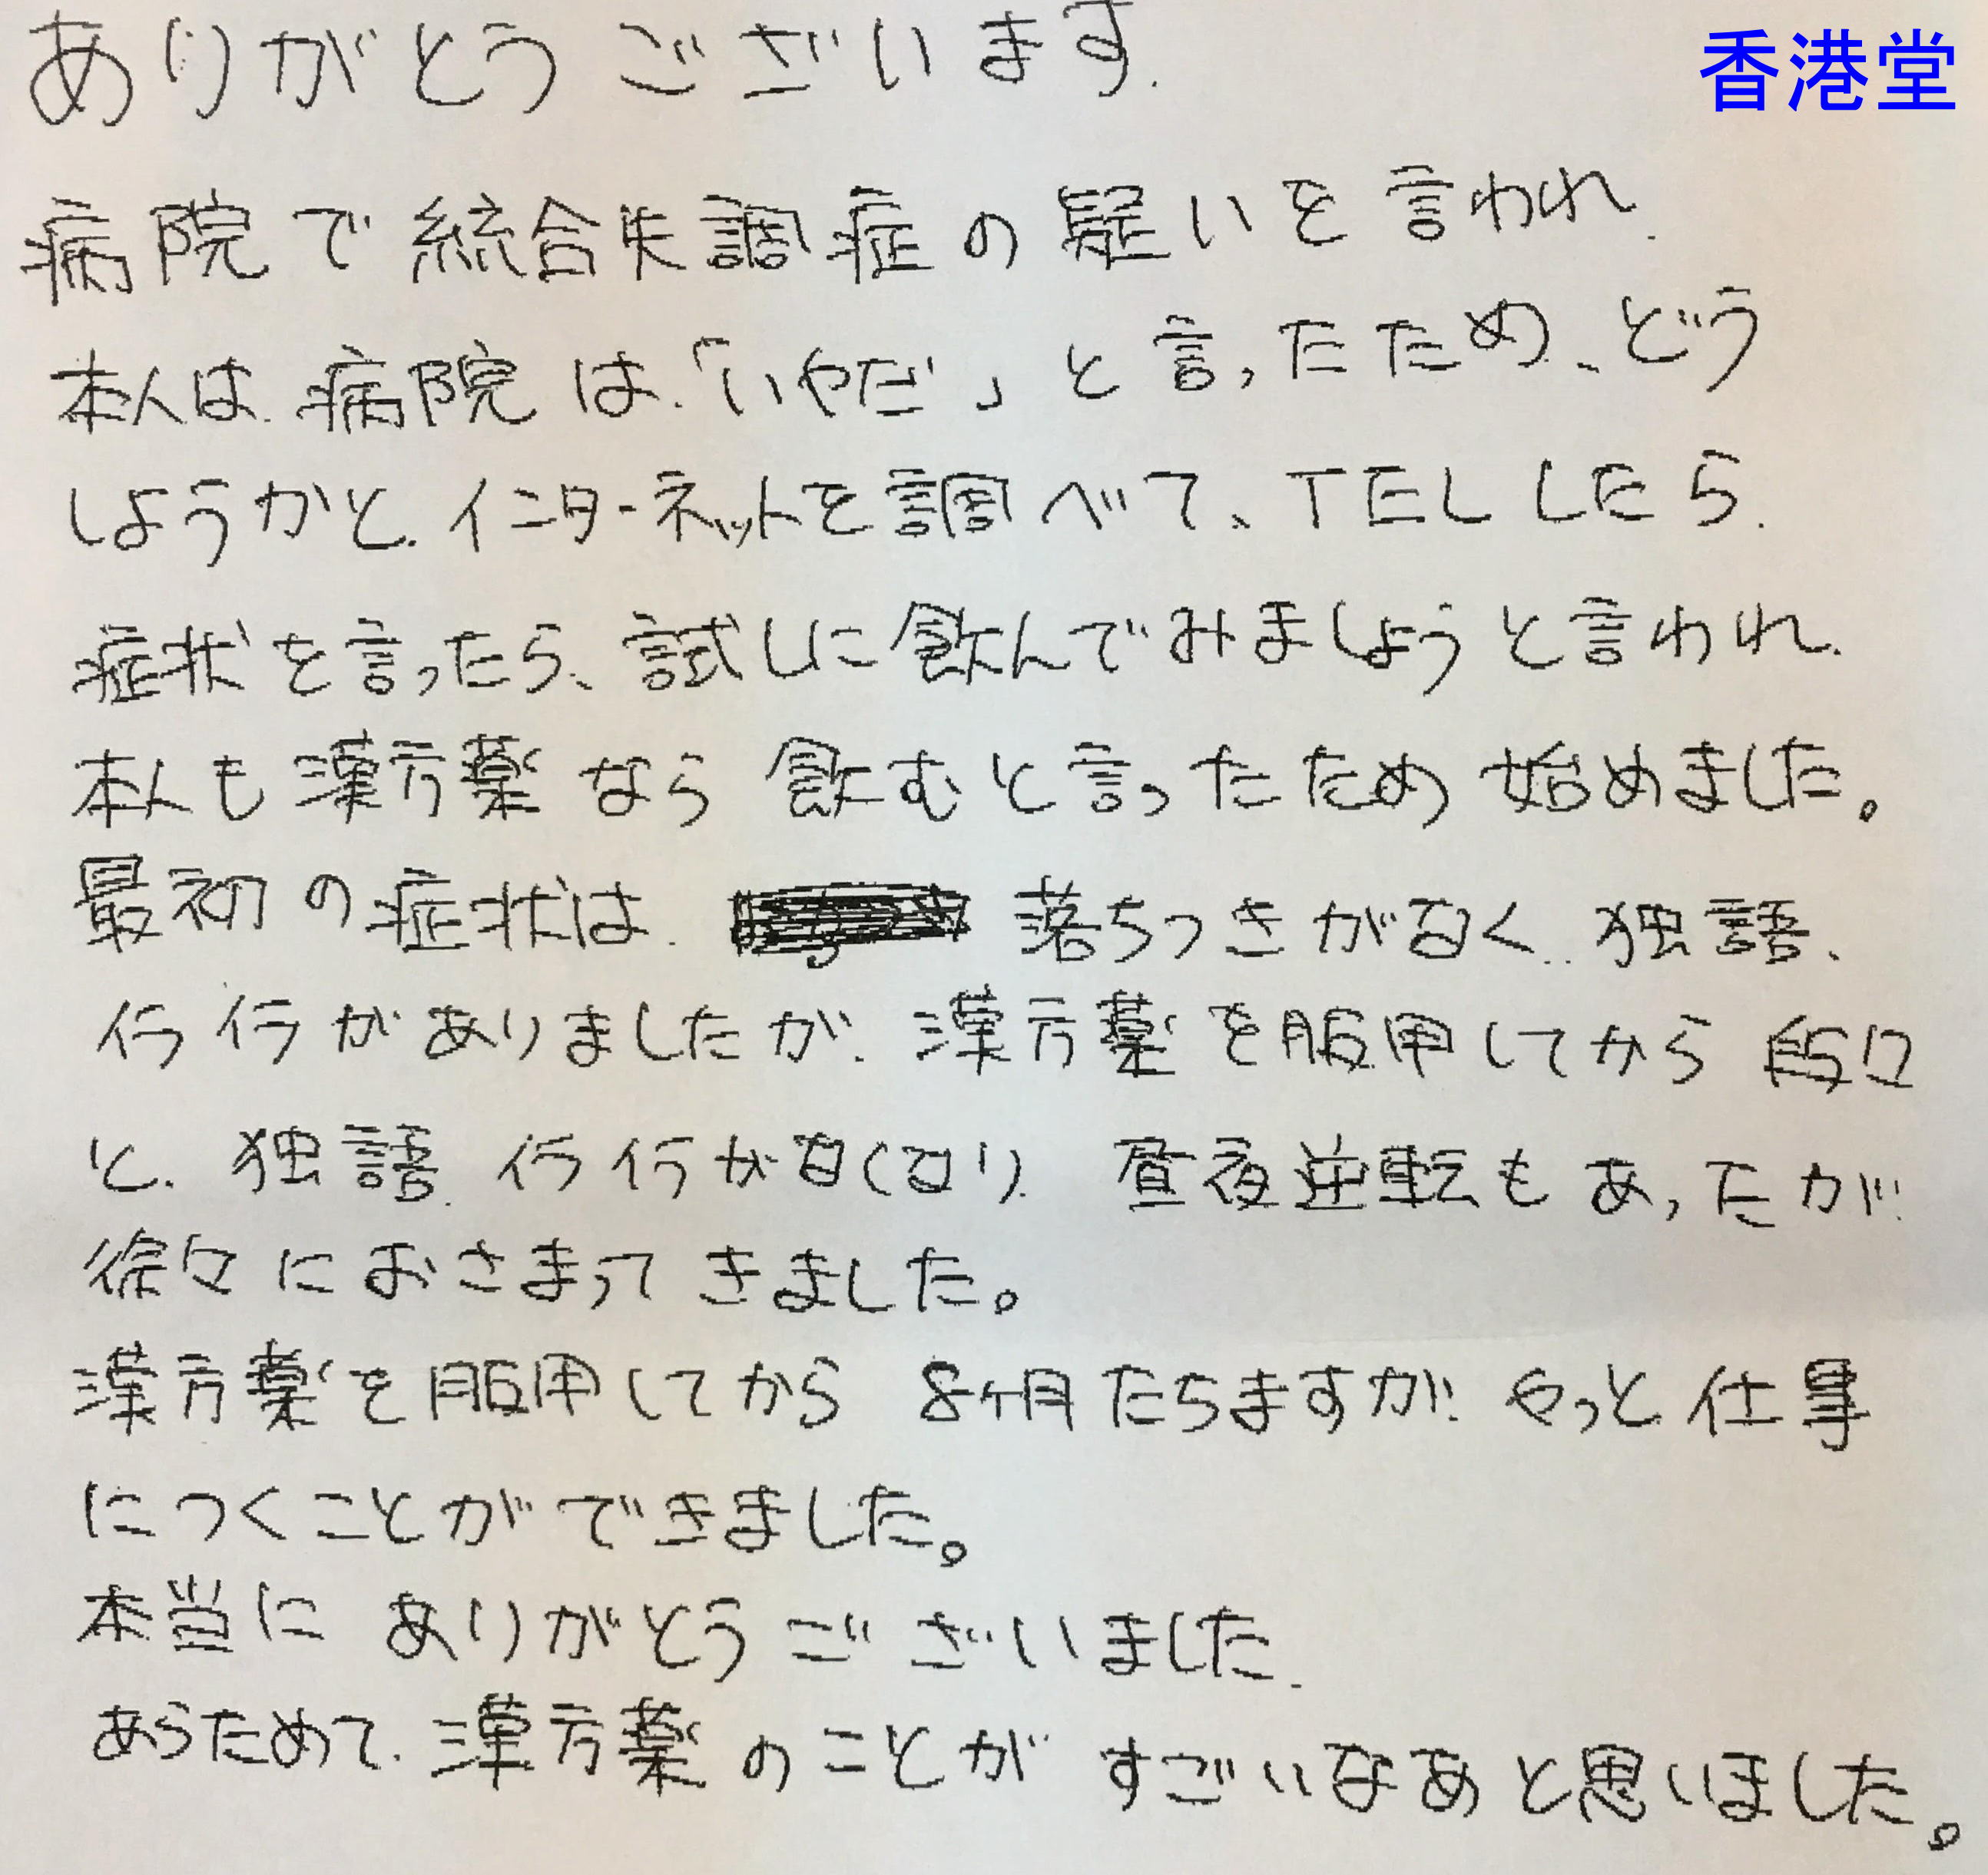 香港堂
ありがとうございます.
病院で統合失調症の疑いを言われ.
本人は.病院は.「いやだ」と言ったため、どう
しようかと.インターネットを調べて、TELしたら.
症状を言ったら、試しに飲んでみましょうと言われ.
本人も漢方薬なら飲むと言ったため始めました。
最初の症状は.落ちつきがなく..独語、
行行がありましたが.漢方薬を服用してから段々
と.独語.行行がなくなり.昼夜逆転もあったが
徐々におさまってきました。
漢方薬を服用してから8ヶ月たちますがやっと仕事
につくことができました。
本当にありがとうございました.
あらためて.漢方薬のことがすごいなあと思いました。